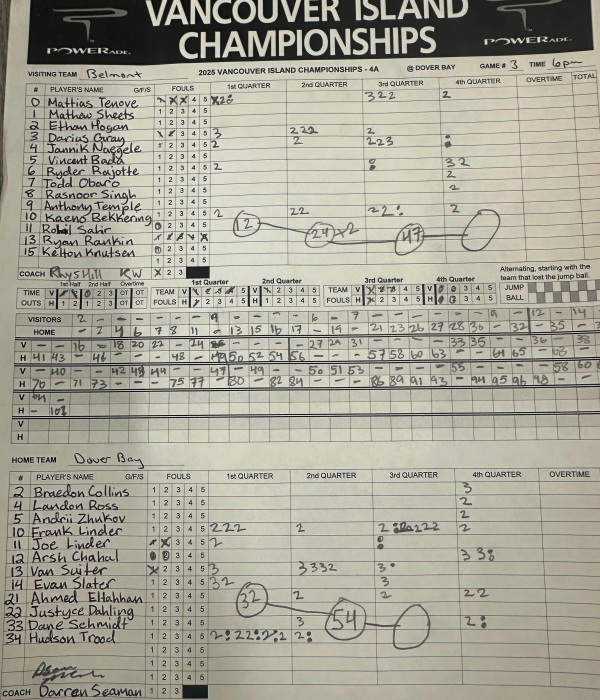 VANCOUVER ISLAND
CHAMPIONSHIPS
POWERADE
POWERADE
VISITING TEAM Belmont 2025 VANCOUVER ISLAND CHAMPIONSHIPS - 4A @ DOVER BAY GAME # 3 TIME 6pm
# PLAYER'S NAME G/F/S FOULS 1st QUARTER 2nd QUARTER 3rd QUARTER 4th QUARTER OVERTIME TOTAL
0 Mattias Tenove 1 2 3 4 5 322 2
1 Mathew Sheets 1 2 3 4 5
2 Ethan Hogan 1 2 3 4 5
3 Darius Gray 3 222 2
4 Jannik Naegele 2 2 223
5 Vincent Bada 1 2 3 4 5 32
6 Ryder Rajotte 1 2 3 4 5 2 2
7 Todd Obaro 1 2 3 4 5 2
8 Rasnoor Singh 1 2 3 4 5
9 Anthony Temple 1 2 3 4 5 2
10 Kaeno Bekkering 2 22
11 Rohil Sahir 12 24 47
13 Ryan Rankin
15 Kelton Knutsen
COACH Rhys Hill KW 2 3
1st Half 2nd Half Overtime 1st Quarter 2nd Quarter 3rd Quarter 4th Quarter
Alternating, starting with the team that lost the jump ball.
TIME OUTS V H TEAM FOULS V H TEAM FOULS V H JUMP BALL
VISITORS 2 - - - - - - 9 - - - - - 6 - 7 - - - - - - 9 - 12 - 14
HOME - 2 4 6 7 8 11 - 13 15 16 17 - 19 - 21 23 26 27 28 30 - 32 - 35 - 3
V - - 16 - 18 20 22 - 24 - - - - 27 29 31 - - - - - 33 35 - - 36 - 38
H 41 43 - 46 - - - 48 - 49 50 52 54 56 - - - 57 58 60 63 - - 64 65 - 68 -
V - 40 - - 42 43 44 - - 47 - 49 - - 50 51 53 - - - - 55 - - - - 58 60
H 70 - 71 73 - - - 75 77 - 80 - 82 84 - - - 86 89 91 93 - 94 95 96 98 - -
V
H - 101
V
H
HOME TEAM Dover Bay
# PLAYER'S NAME G/F/S FOULS 1st QUARTER 2nd QUARTER 3rd QUARTER 4th QUARTER OVERTIME
2 Braedon Collins 1 2 3 4 5 3
4 Landon Ross 1 2 3 4 5 2
5 Andrii Zhukov 1 2 3 4 5 2
10 Frank Linder 1 2 3 4 5 222 2 2
11 Joe Linder 3 4 5 2
12 Arsh Chahal 3 4 5 33
13 Van Suiter 2 3 4 5 3 3332 3
14 Evan Slater 1 2 3 4 5 32 3
21 Ahmed Eltahhan 1 2 3 4 5 2 2 22
22 Justyce Dahling 1 2 3 4 5 32 54
33 Dane Schmidt 1 2 3 4 5 3 2
34 Hudson Trood 1 2 3 4 5
1 2 3 4 5
1 2 3 4 5
COACH Darren Seaman 1 2 3